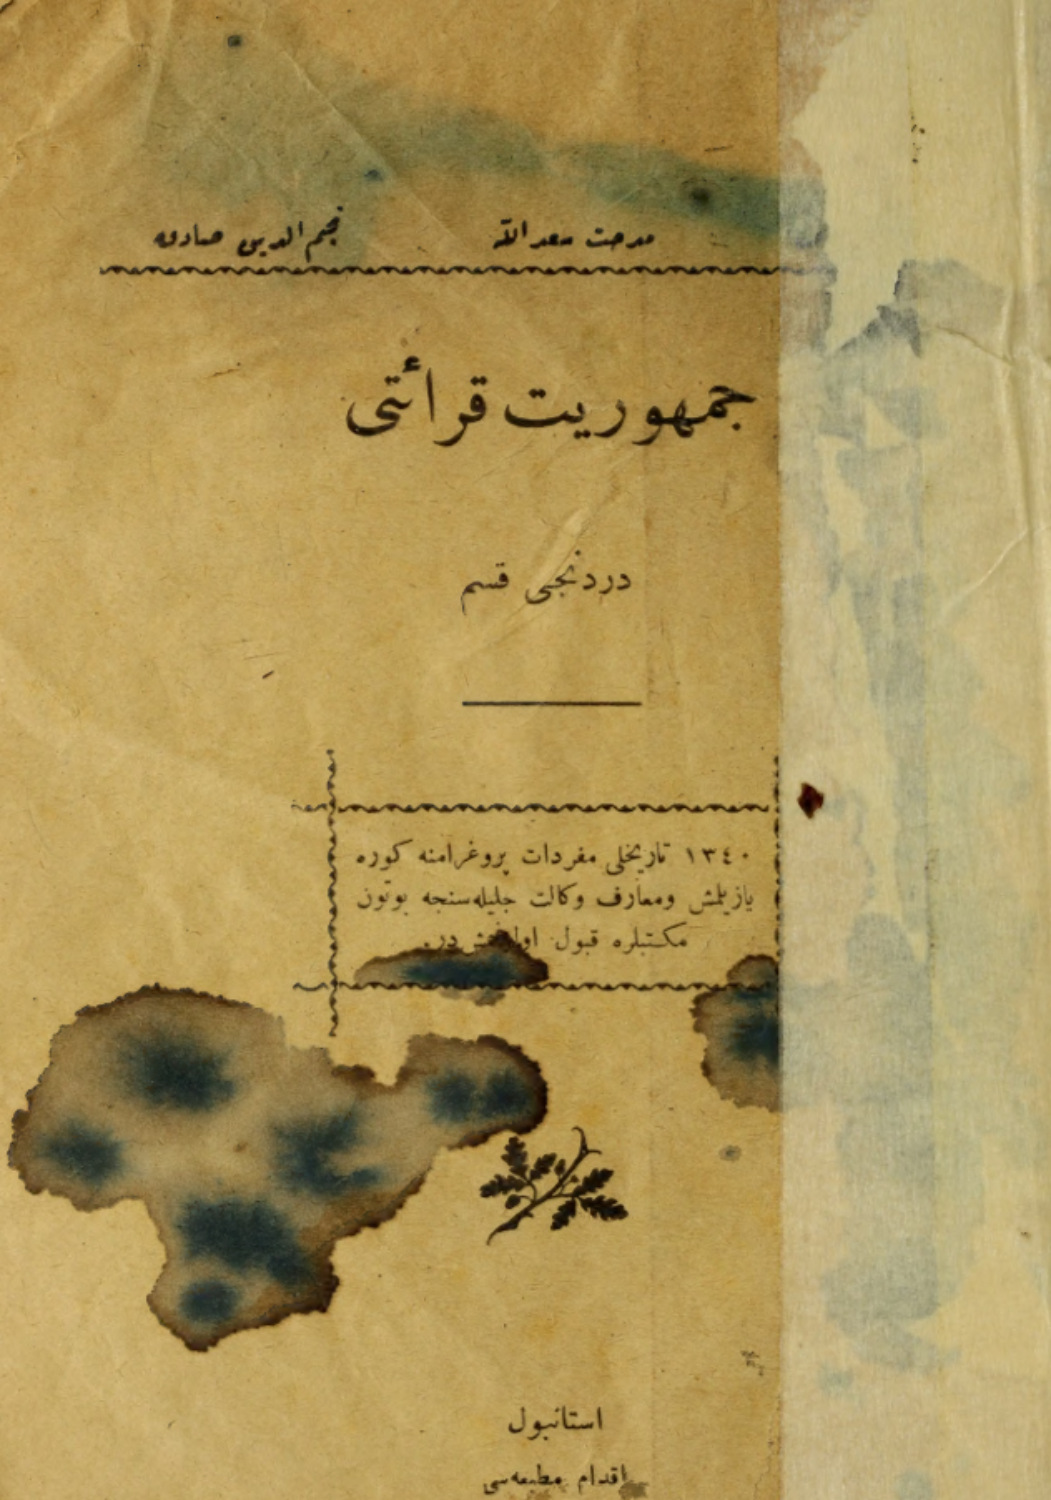 مدحت سعدالله نجم الدين صادق
جمهوريت قرائتى
دردنجى قسم
١٣٤٠ تاريخلى مفردات پروغرامنه كوره
يازيلمش ومعارف وكالت جليله‌سنجه بوتون
مكتبلره قبول اولنمش در.
استانبول
اقدام مطبعه‌سى